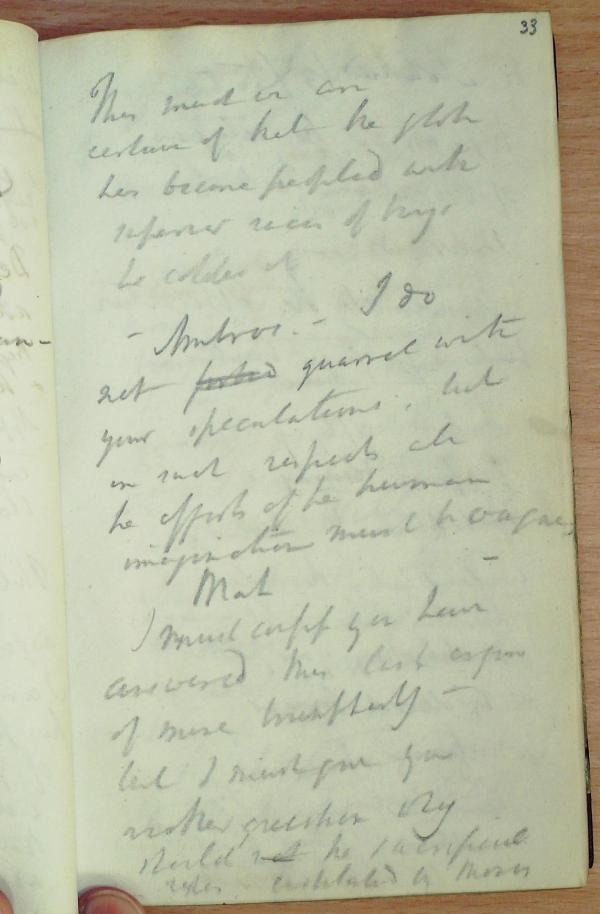 33
This
certain of that the globe
has become peopled with
superior races of beings
the colder
- Ambros. - I do
not quarrel with
your speculations, but
in such respects all
the efforts of the human
imagination must be vague
Mat
I must confess you have
answered this last
of mine triumphantly -
but I must give you
another question why
should not the sacrificial
rites instituted by Moses